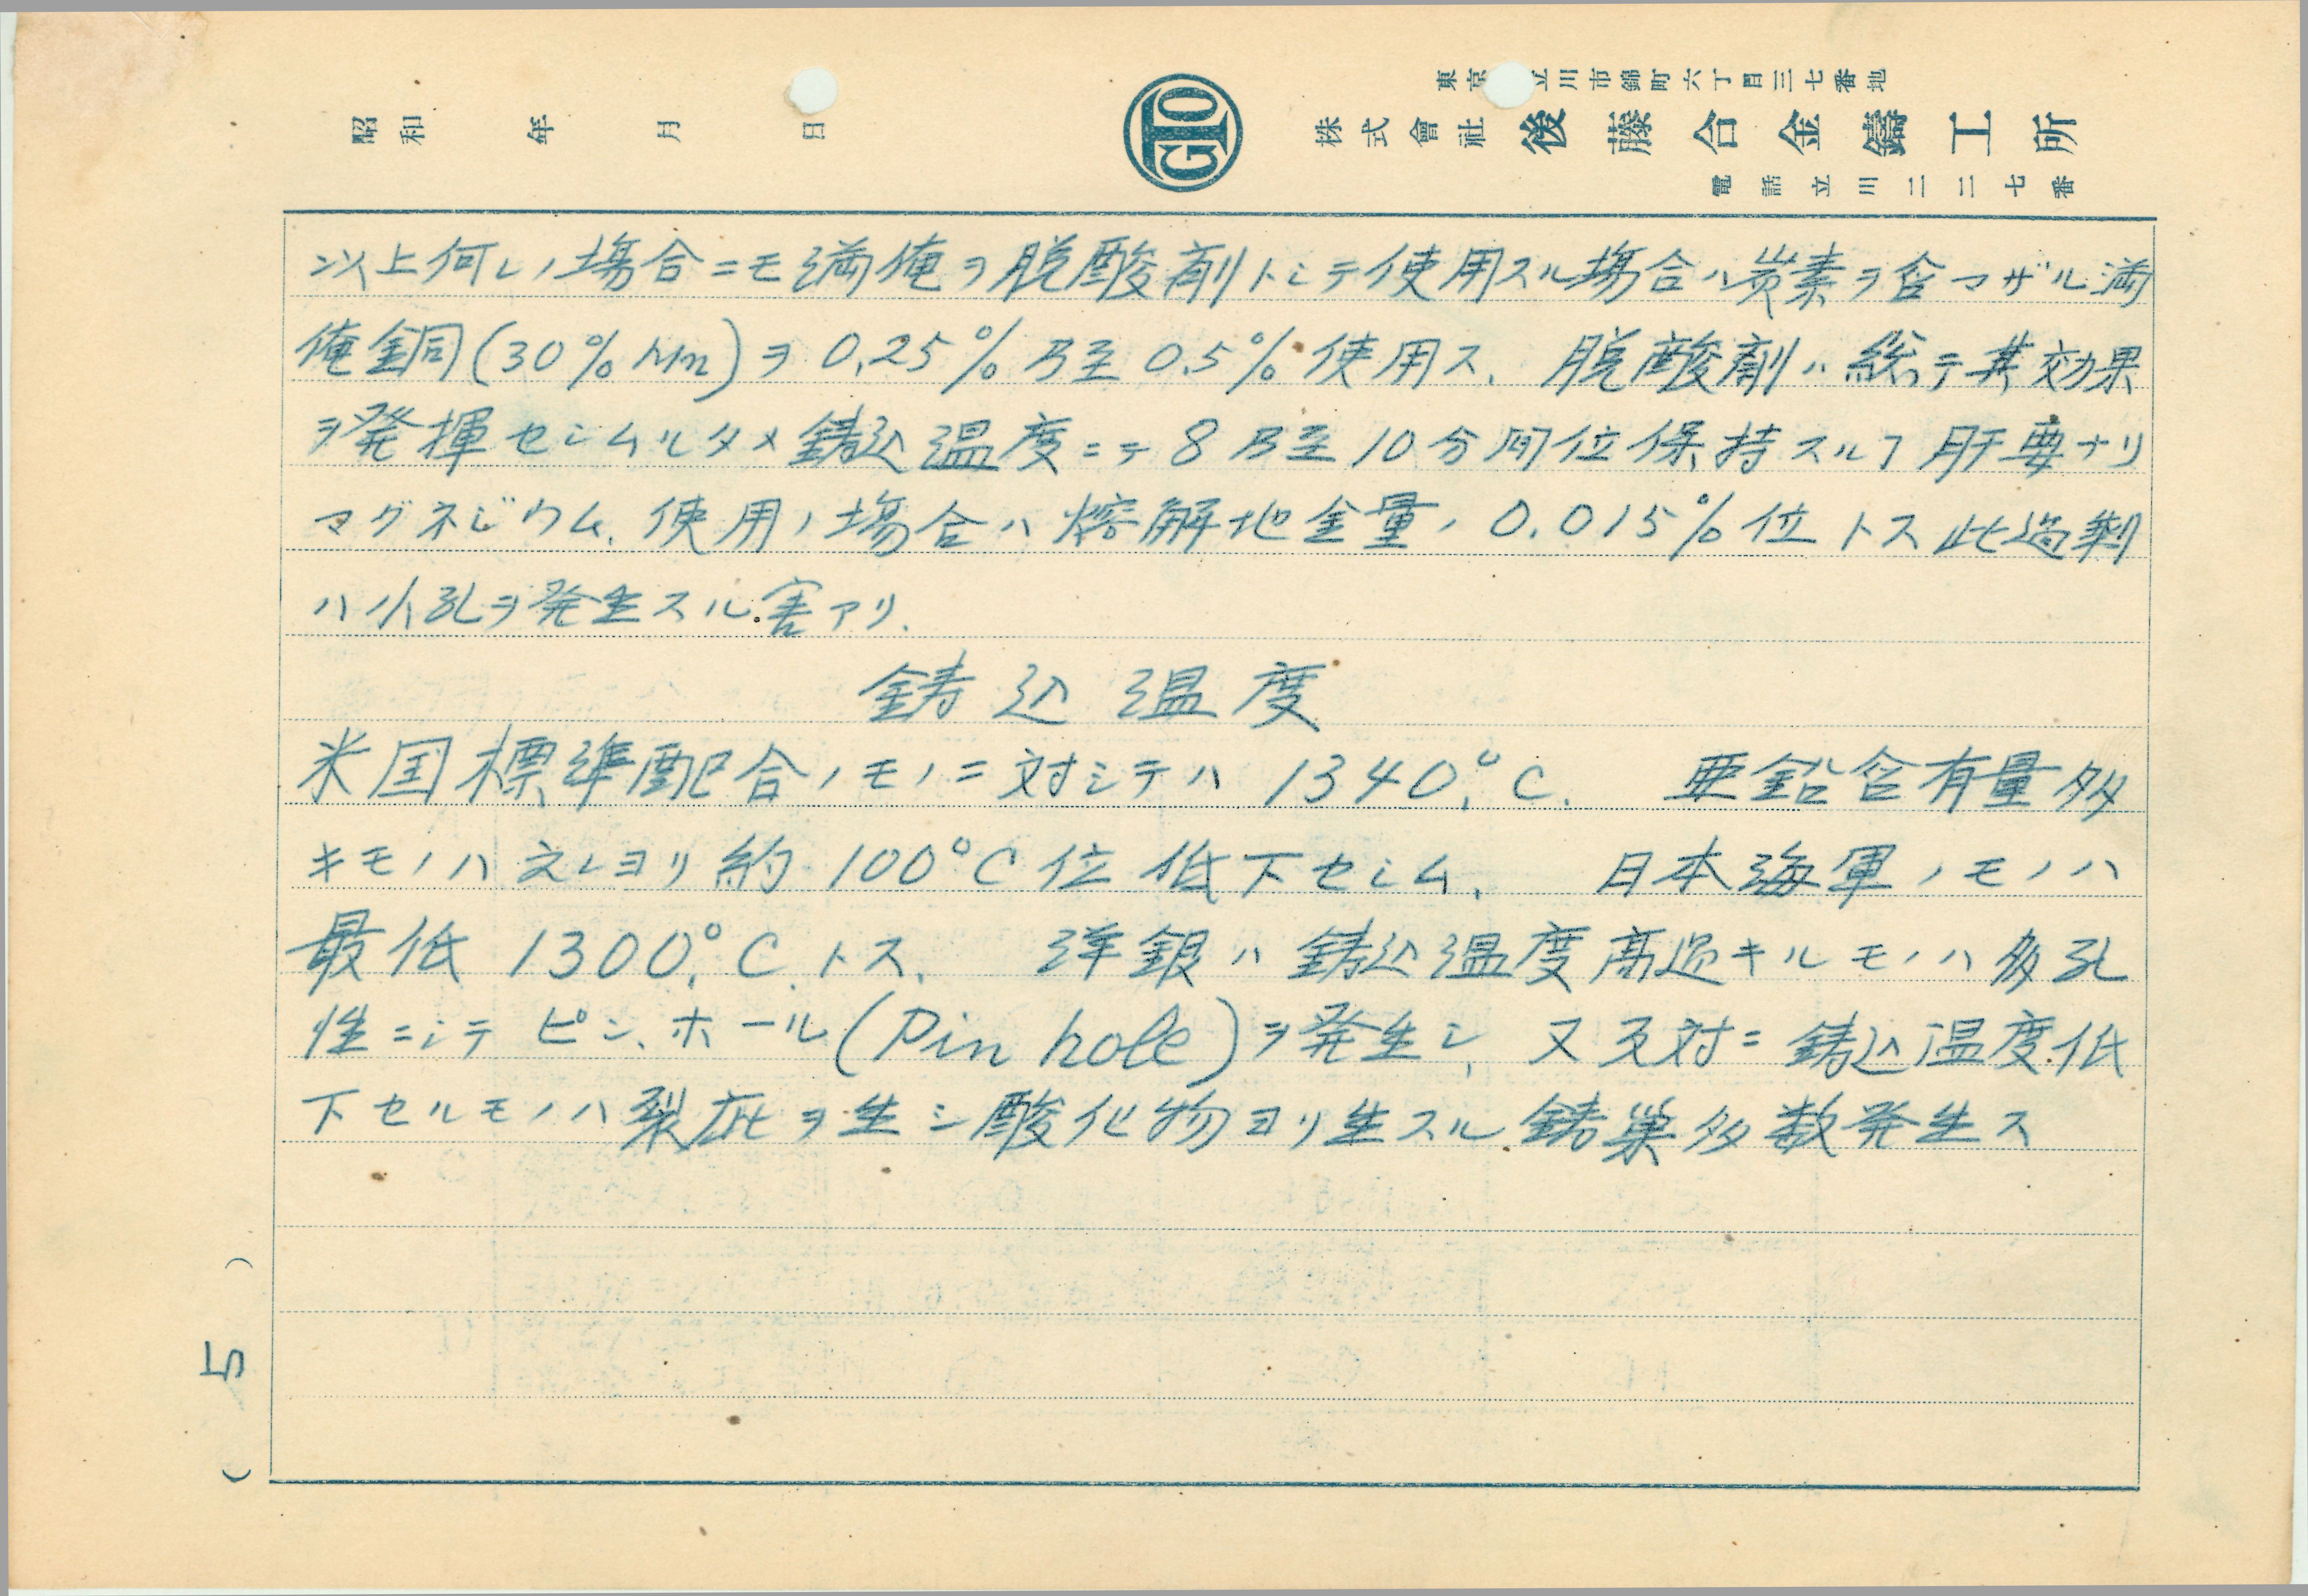 東京 立川市錦町六丁目三七番地
株式會社 後藤合金鑄工所
電話立川二二七番
昭和 年 月 日
GTO
以上何レノ場合ニモ満俺ヲ脱酸剤トシテ使用スル場合ハ炭素ヲ含マザル満
俺銅(30% Mn)ヲ0.25%乃至0.5%使用ス、脱酸剤ハ総テ其効果
ヲ発揮セシムルタメ鋳込温度ニテ8乃至10分間位保持スルヿ肝要ナリ
マグネシ゛ウム、使用ノ場合ハ熔解地金量ノ0.015%位トス此過剰
ハ小孔ヲ発生スル害アリ.
鋳込温度
米国標準配合ノモノニ対シテハ1340°C. 亜鉛含有量多
キモノハ之レヨリ約100°C位低下セシム、 日本海軍ノモノハ
最低1300°C.トス、 洋銀ハ鋳込温度高過キルモノハ多孔
性ニシテピン、ホール(Pin hole)ヲ発生シ、又反対ニ鋳込温度低
下セルモノハ裂疵ヲ生シ酸化物ヨリ生スル鋳巣多数発生ス
(5)